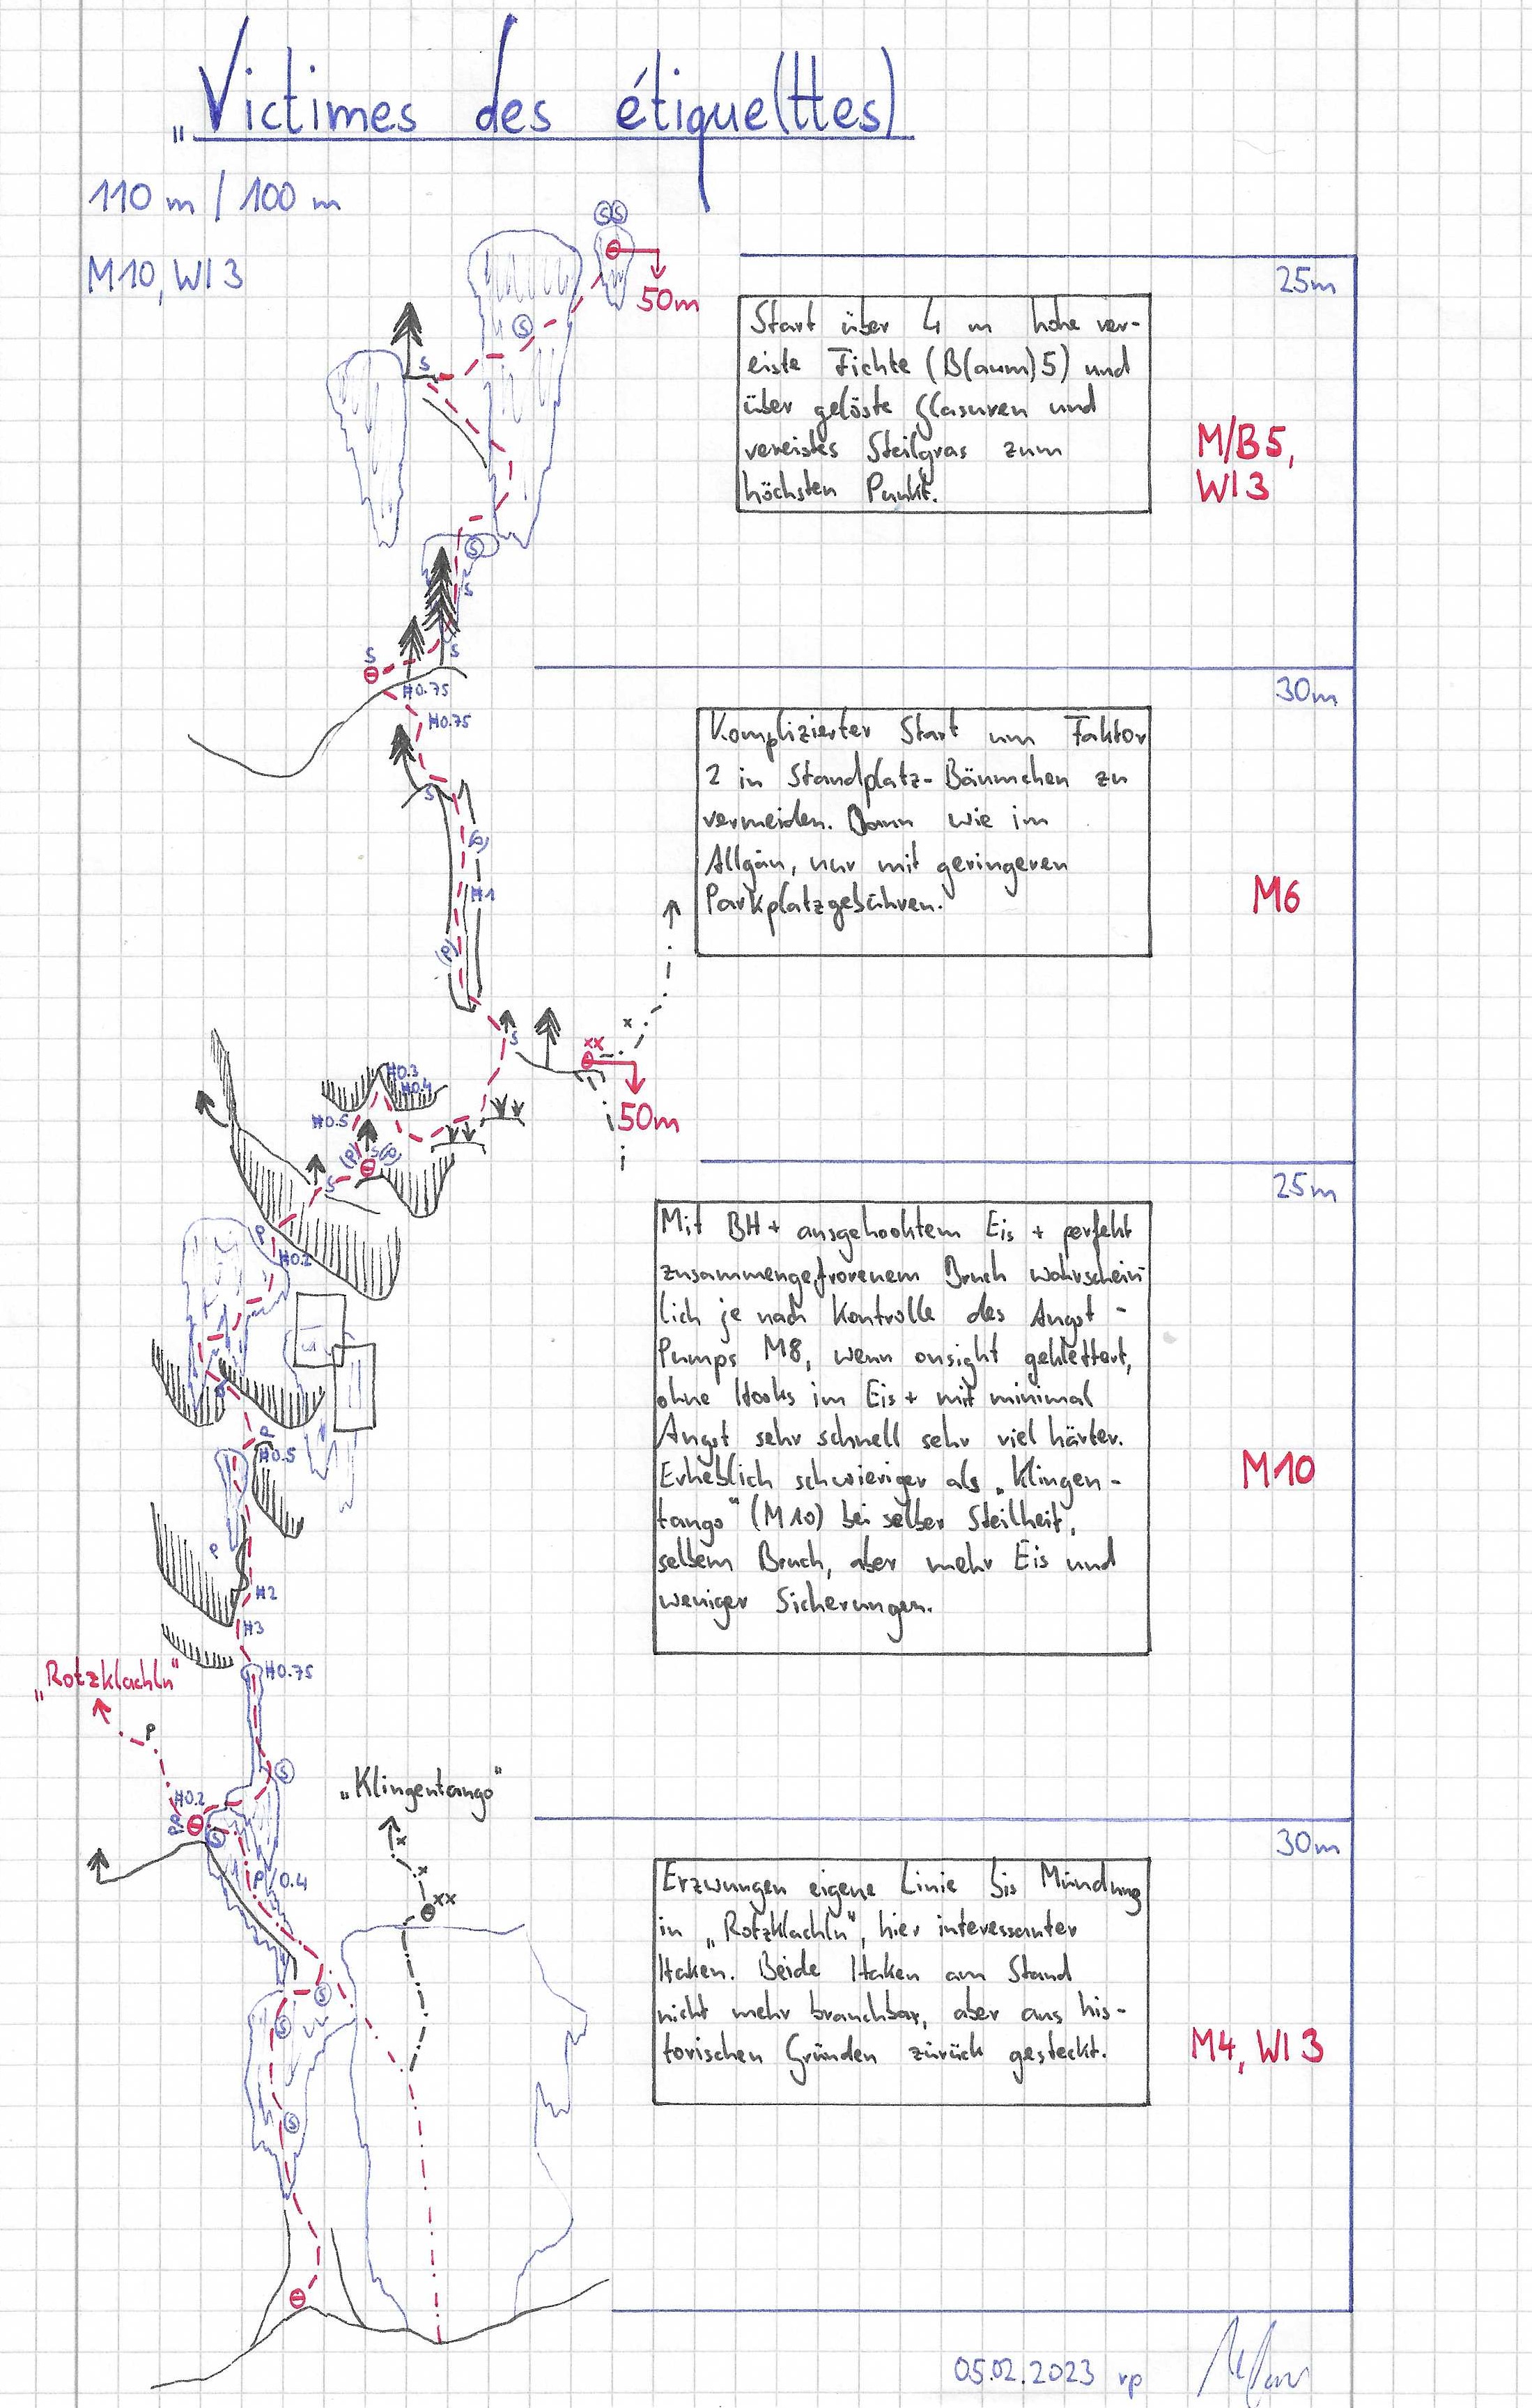 „Victimes des étique(ttes)
110 m / 100 m
M10, WI 3
SS
50m
25m
Start über 4 m hohe ver-
eiste Fichte (B(aum)5) und
über gelöste Glasuren und
vereistes Steilgras zum
höchsten Punkt.
M/B 5,
WI 3
S
S
S
S
S
S
H0.75
H0.75
S
(P)
H1
(P)
30m
Komplizierter Start um Faktor
2 in Standplatz-Bäumchen zu
vermeiden. Dann wie im
Allgäu, nur mit geringeren
Parkplatzgebühren.
M6
S
xx
x
50m
H0.3
H0.4
H0.5
(P)
S
S
P
H0.2
25m
Mit BH + ausgehooktem Eis + perfekt
zusammengefrorenem Bruch wahrschein
lich je nach Kontrolle des Angst-
Pumps M8, wenn onsight geklettert,
ohne Hooks im Eis + mit minimal
Angst sehr schnell sehr viel härter.
Erheblich schwieriger als „Klingen-
tango" (M10) bei selber Steilheit,
selbem Bruch, aber mehr Eis und
weniger Sicherungen.
M10
P
H0.5
P
H2
H3
H0.75
„Rotzklachln"
P
S
H0.2
PP
S
P/0.4
„Klingentango"
x
x
xx
30m
Erzwungen eigene Linie bis Mündung
in „Rotzklachln", hier interessanter
Haken. Beide Haken am Stand
nicht mehr brauchbar, aber aus his-
torischen Gründen zurück gesteckt.
M4, WI 3
S
S
S
05.02.2023 rp